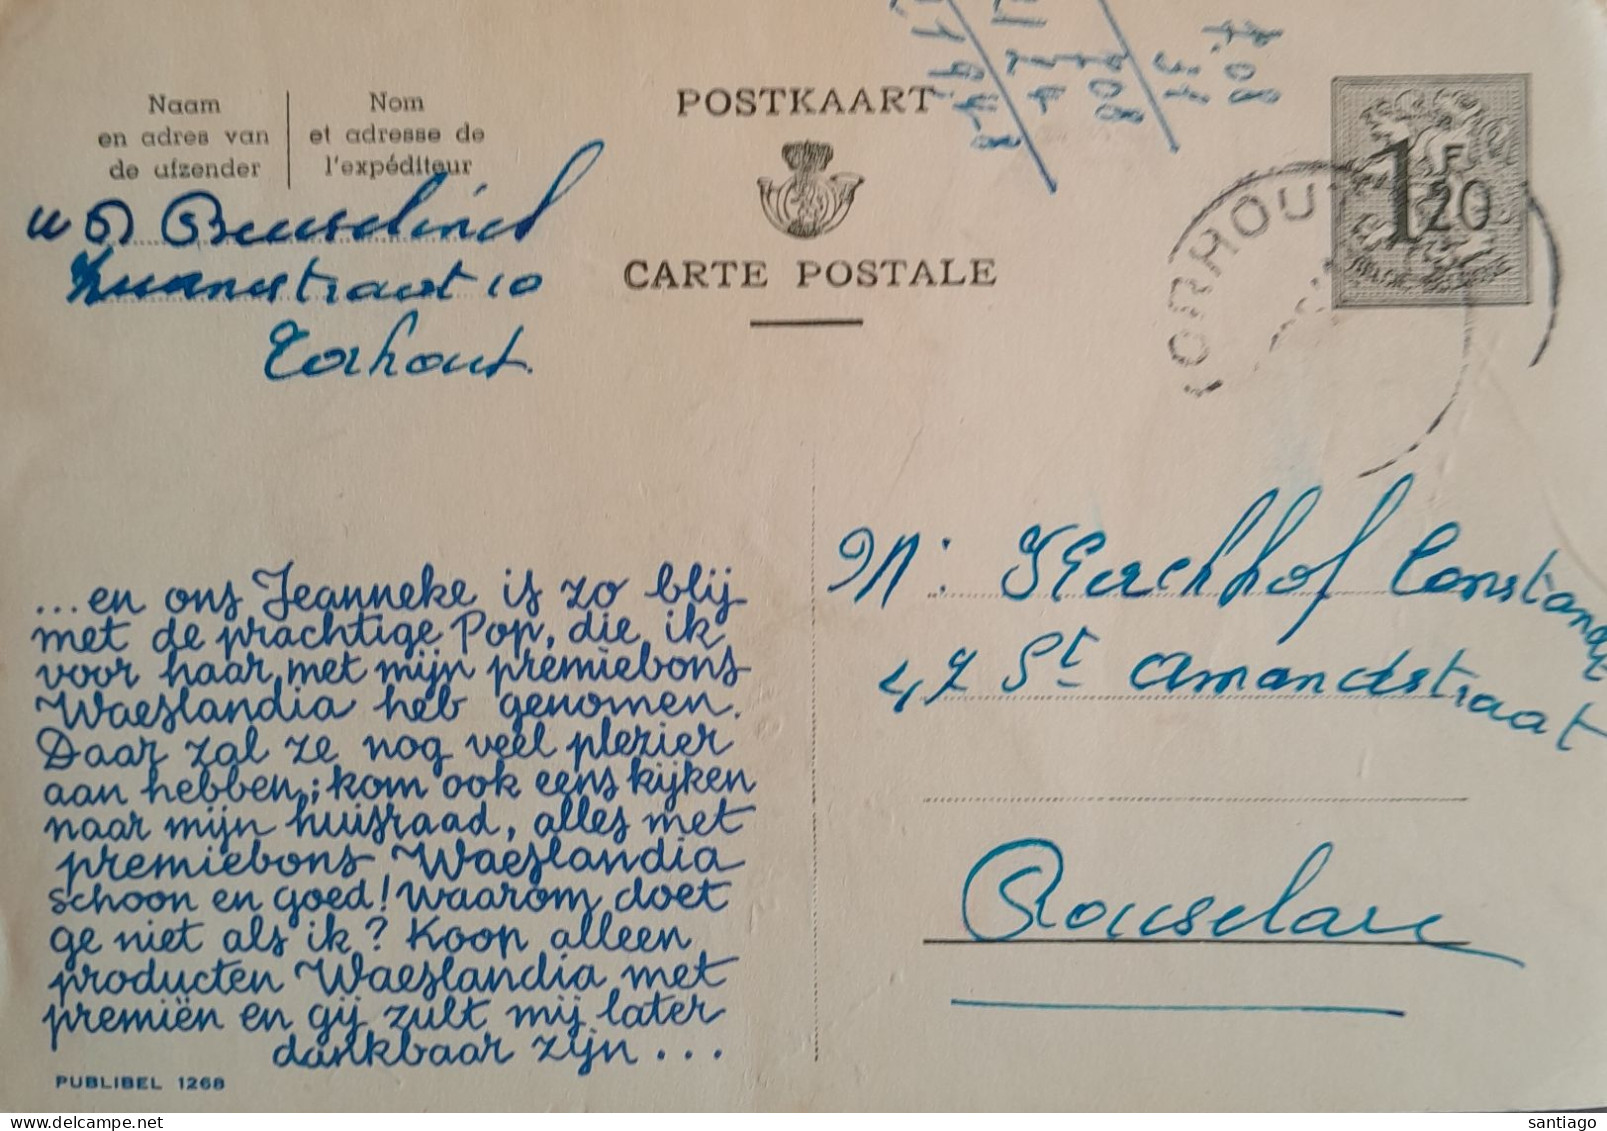 Naam
en adres van
de afzender
Nom
et adresse de
l'expéditeur
POSTKAART
CARTE POSTALE
7.08
708
1 F
20
TORHOUT
10
Torhout.
...en ons Jeanneke is zo blij
met de prachtige Pop, die ik
voor haar met mijn premiebons
Waeslandia heb genomen.
Daar zal ze nog veel plezier
aan hebben; kom ook eens kijken
naar mijn huisraad, alles met
premiebons Waeslandia
schoon en goed! Waarom doet
ge niet als ik? Koop alleen
producten Waeslandia met
premiën en gij zult mij later
dankbaar zijn...
PUBLIBEL 1268
M: Kerckhof Constand
47 St Amandstraat
Rouselare
santiago